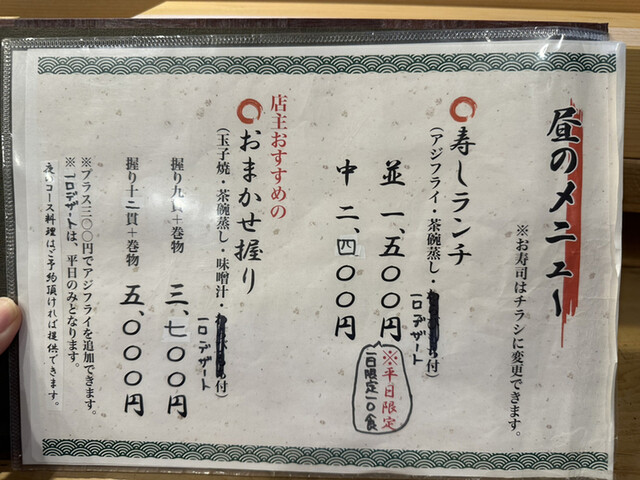 昼のメニュー
※お寿司はチラシに変更できます。
寿しランチ
(アジフライ・茶碗蒸し・
付)
一口デザート
並 一、五〇〇円
※平日限定
一日限定一〇食
中 二、四〇〇円
店主おすすめの
おまかせ握り
(玉子焼・茶碗蒸し・味噌汁・
付)
一口デザート
握り九貫+巻物 三、七〇〇円
握り十二貫+巻物 五、〇〇〇円
※プラス三〇〇円でアジフライを追加できます。
※一口デザートは、平日のみとなります。
夜のコース料理はご予約頂ければ提供できます。